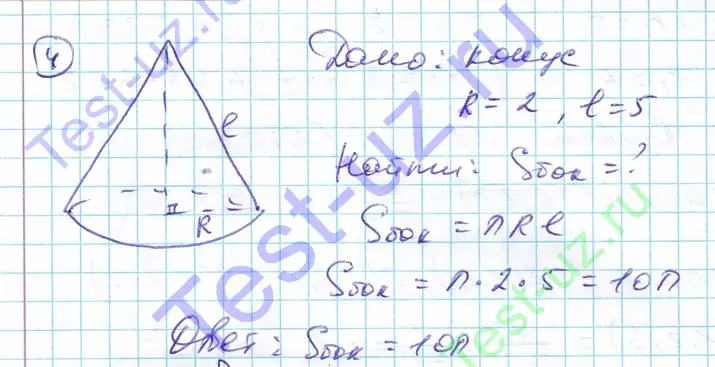 4
Дано: конус
R = 2, l = 5
Найти: Sбок = ?
l
R
Sбок = πRl
Sбок = π · 2 · 5 = 10π
Ответ: Sбок = 10π
Test-uz.ru
Test-uz.ru
Test-uz.ru